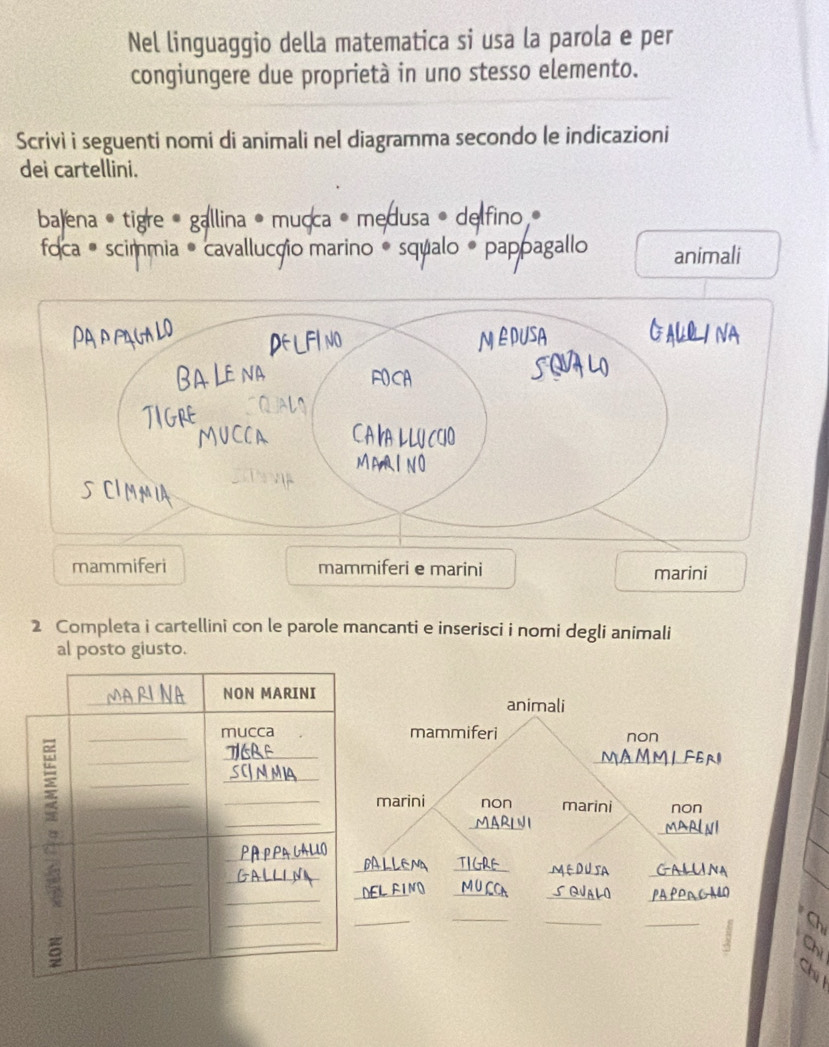 Nel linguaggio della matematica si usa la parola e per
congiungere due proprietà in uno stesso elemento.
Scrivi i seguenti nomi di animali nel diagramma secondo le indicazioni
dei cartellini.
balena • tigre • gallina • mucca • medusa • delfino •
foca • scimmia • cavalluccio marino • squalo • pappagallo
animali
PAPPAGALO
DELFINO
MEDUSA
GALLINA
BALENA
FOCA
SQUALO
TIGRE
MUCCA
CAVALLUCCIO
MARINO
SCIMMIA
mammiferi
mammiferi e marini
marini
2 Completa i cartellini con le parole mancanti e inserisci i nomi degli animali
al posto giusto.
MARINA
NON MARINI
MAMMIFERI
mucca
TIGRE
SCINMIA
NON
PAPPAGALLO
GALLINA
animali
mammiferi
non
MAMMIFERI
marini
non
MARINI
marini
non
MARINI
BALLENA
TIGRE
MEDUSA
GALLINA
DELFINO
MUCCA
SQUALO
PAPPAGALO
Chi
Chi
Chi h